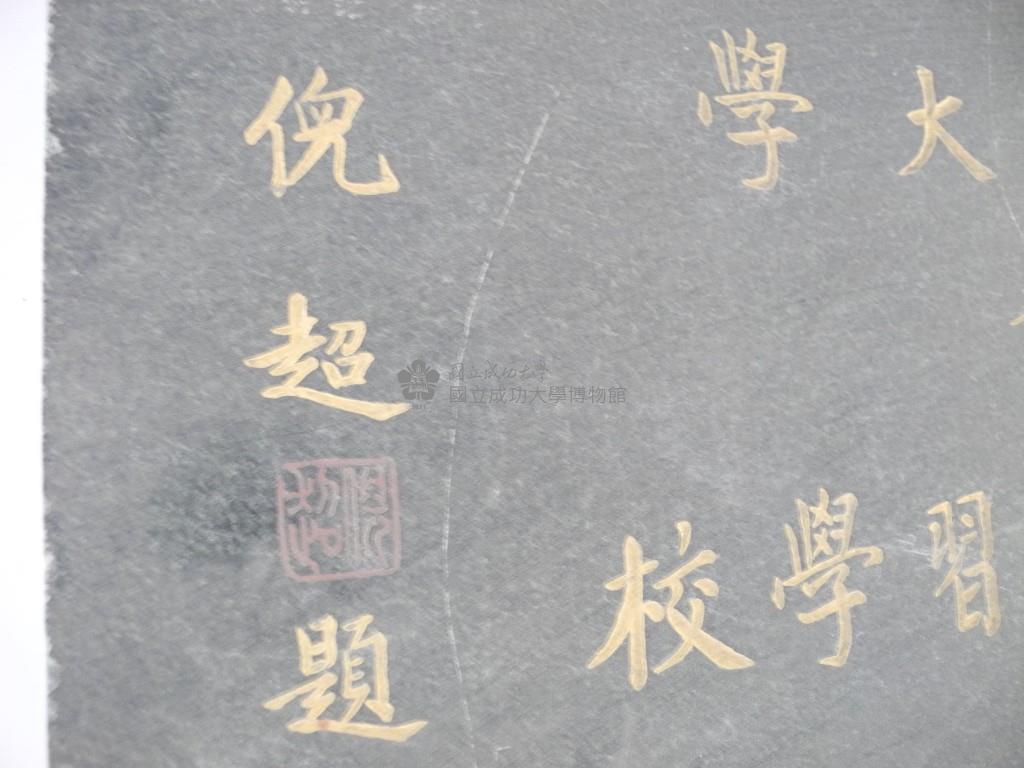 大
習
學
學
校
倪超題
國立成功大學
國立成功大學博物館